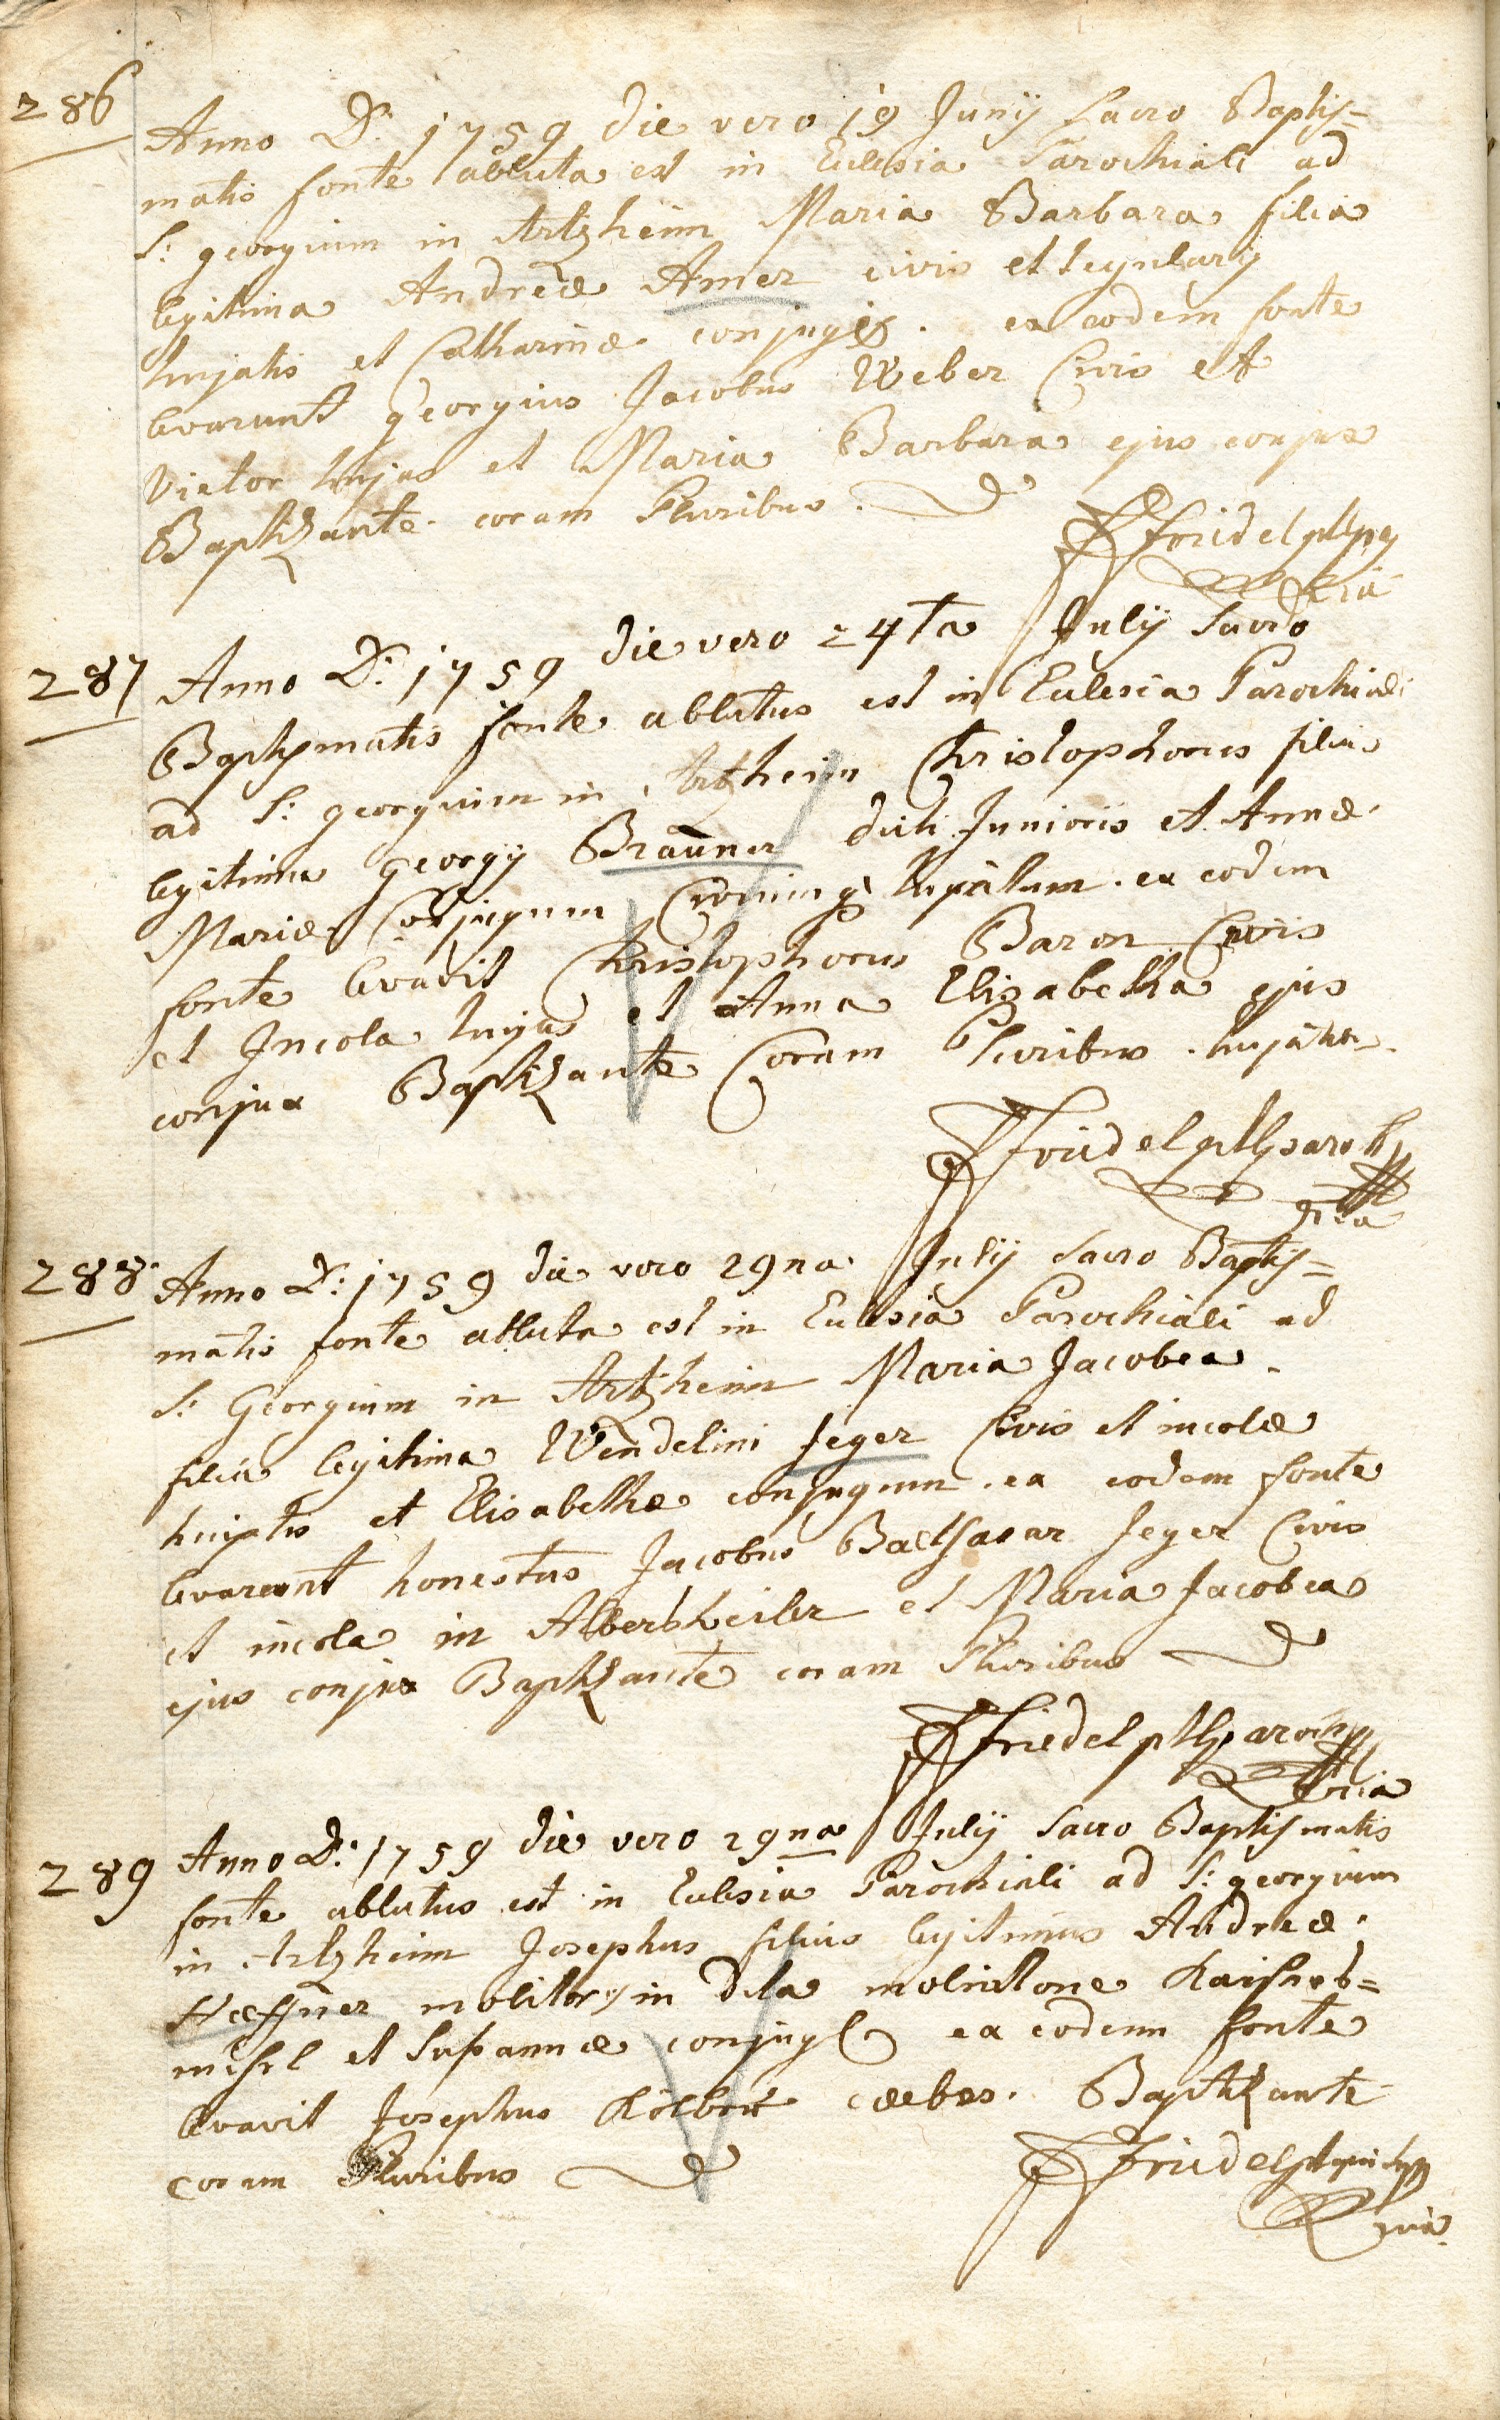 286
Anno D: 1759 die vero 19 Junij sacro Baptis=
matis fonte abluta est in Eclesia Parochiali ad
S: georgium in Artzheim Maria Barbara filia
legitima Andreæ Amer civis et tegularij
hujatis et Catharinæ conjugū. ex eodem fonte
levarunt georgius Jacobus Weber Civis et
Vietor hujas et Maria Barbara ejus conjux
Baptizante coram Pluribus.
Friedel
287
Anno D: 1759 die vero 24ta Julij Sacro
Baptismatis fonte ablutus est in Eclesia Parochiali
ad S: georgium in Artzheim Christophorus filius
legitimus georgij Braūner dicti Junioris et Annæ
Mariæ Conjugum Civium hujatum. ex eodem
fonte levavit Christophorus Baron Civis
et Incola hujas et Anna Elisabetha ejus
conjux Baptizante Coram Pluribus hujatibus.
Friedel
288
Anno D: 1759 die vero 29na Julij sacro Baptis=
matis fonte abluta est in Eclesia Parochiali ad
S: Georgium in Artzheim Maria Jacobea
filia legitima Wendelini Jeger Civis et incolæ
hujatis et Elisabethæ conjugum. ex eodem fonte
levarunt honestus Jacobus Balthasar Jeger Civis
et incola in Albersweiler et Maria Jacobea
ejus conjux Baptizante coram Pluribus
Friedel
289
Anno D: 1759 die vero 29na Julij Sacro Baptismatis
fonte ablutus est in Eclesia Parochiali ad S: georgium
in Artzheim Josephus filius legitimus Andreæ
Hæffner molitoris in dicta
et Susannæ conjug ex eodem fonte
levavit Josephus cælebs. Baptizante
coram Pluribus
Friedel